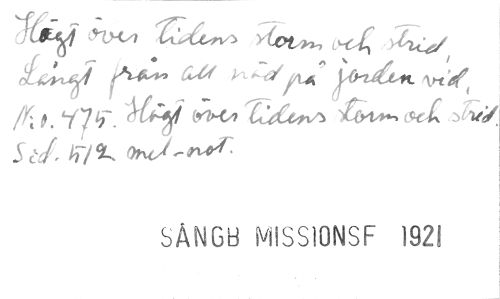 Högt över tidens storm och strid,
Långt från all nöd på jorden vid,
N:o. 475. Högt över tidens storm och strid.
Sid. 512 mel-not.
SÅNGB MISSIONSF 1921